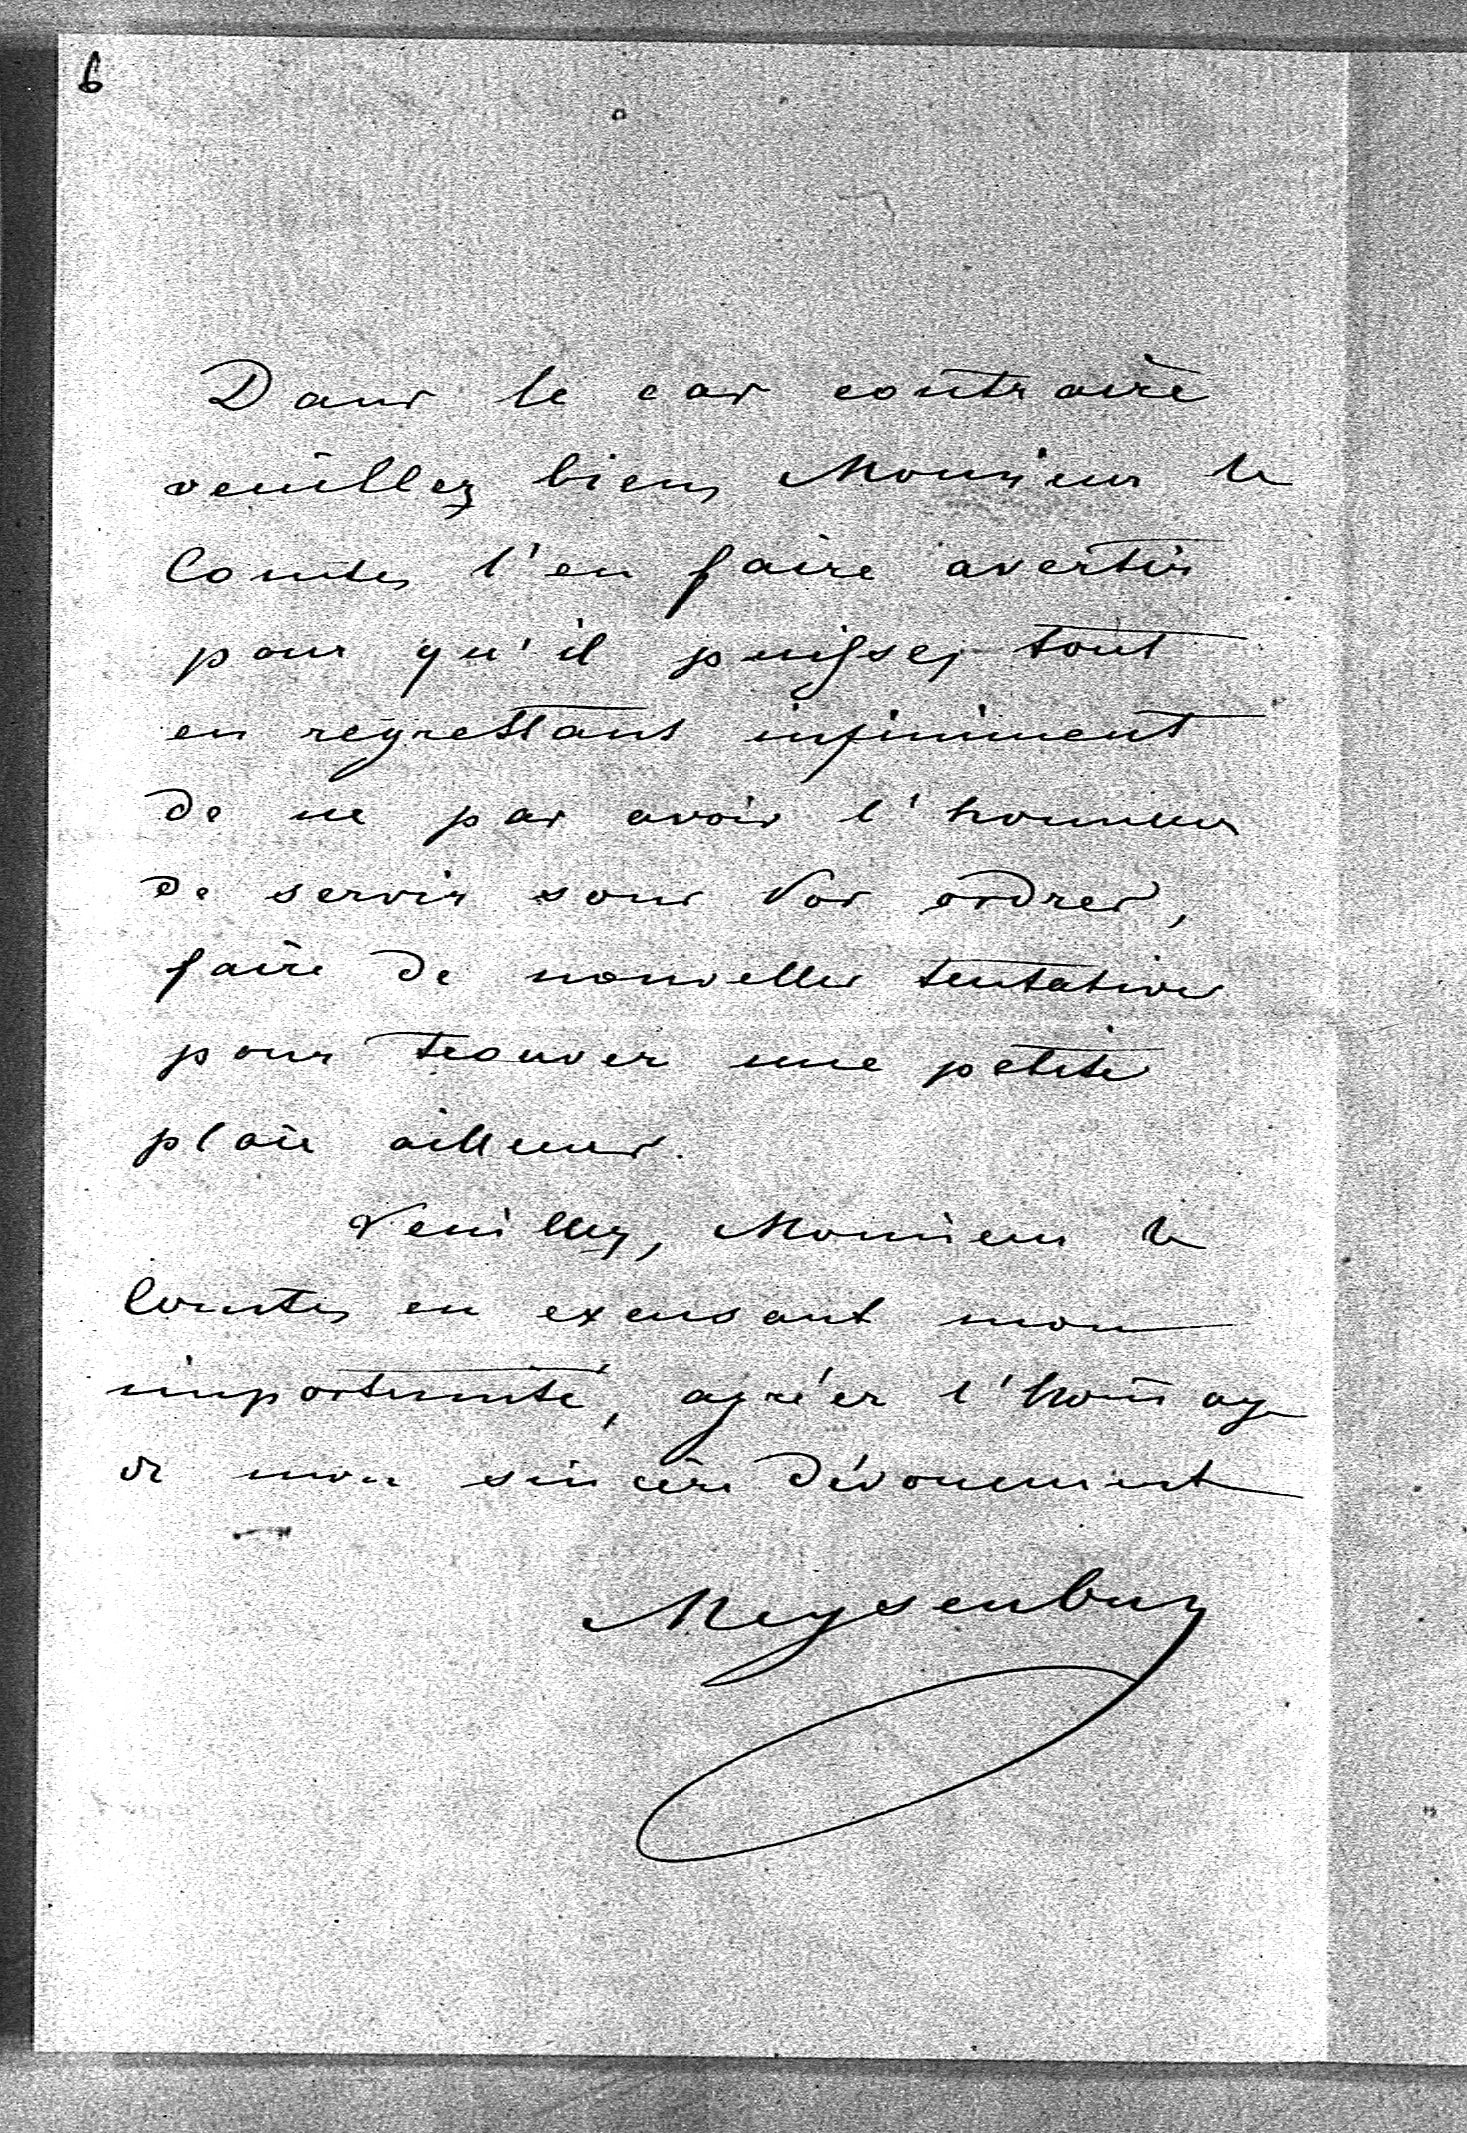 6
Dans le cas contraire
veuillez bien, Monsieur le
Comte, l'en faire avertir
pour qu'il puisse, tout
en regrettant infiniment
de ne pas avoir l'honneur
de servir sous Vos ordres,
faire de nouvelles tentatives
pour trouver une petite
place ailleurs.
Veuillez, Monsieur le
Comte, en excusant mon
importunité, agréer l'hom̄age
de mon sincère dévouement
Meysenbug